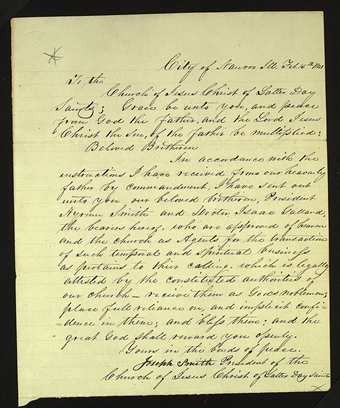 City of Nauvoo Ill. Feb. 15th 1841
To the
Church of Jesus Christ of Latter Day
Saints; Grace be unto you, and peace
from God the Father, and the Lord Jesus
Christ the Son, of the father be multiplied;
Beloved Bretheren
In accordance with the
instructions I have received from our heavenly
father by commandment, I have sent out
unto you, our beloved bretheren, President
Hyrum Smith and Doctor Isaac Galland,
the bearers hereof, who are approved of heaven
and the church as Agents for the transaction
of such temporal and spiritual business
as pertains to their calling, which is legally
attested by the constituted authorities of
our church — receive them as Gods noblemen;
place full reliance on, and implicit confi-
dence in them; and bless them; and the
great God shall reward you openly.
Yours in the bonds of peace.
Joseph Smith President of the
Church of Jesus Christ of Latter Day Saints